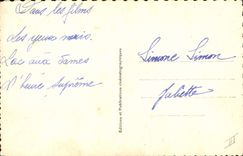 Dans les films
Les yeux noirs.
Lac aux dames
L'heure suprême
Editions et Publications cinématographiques
Simone Simon
Juliette